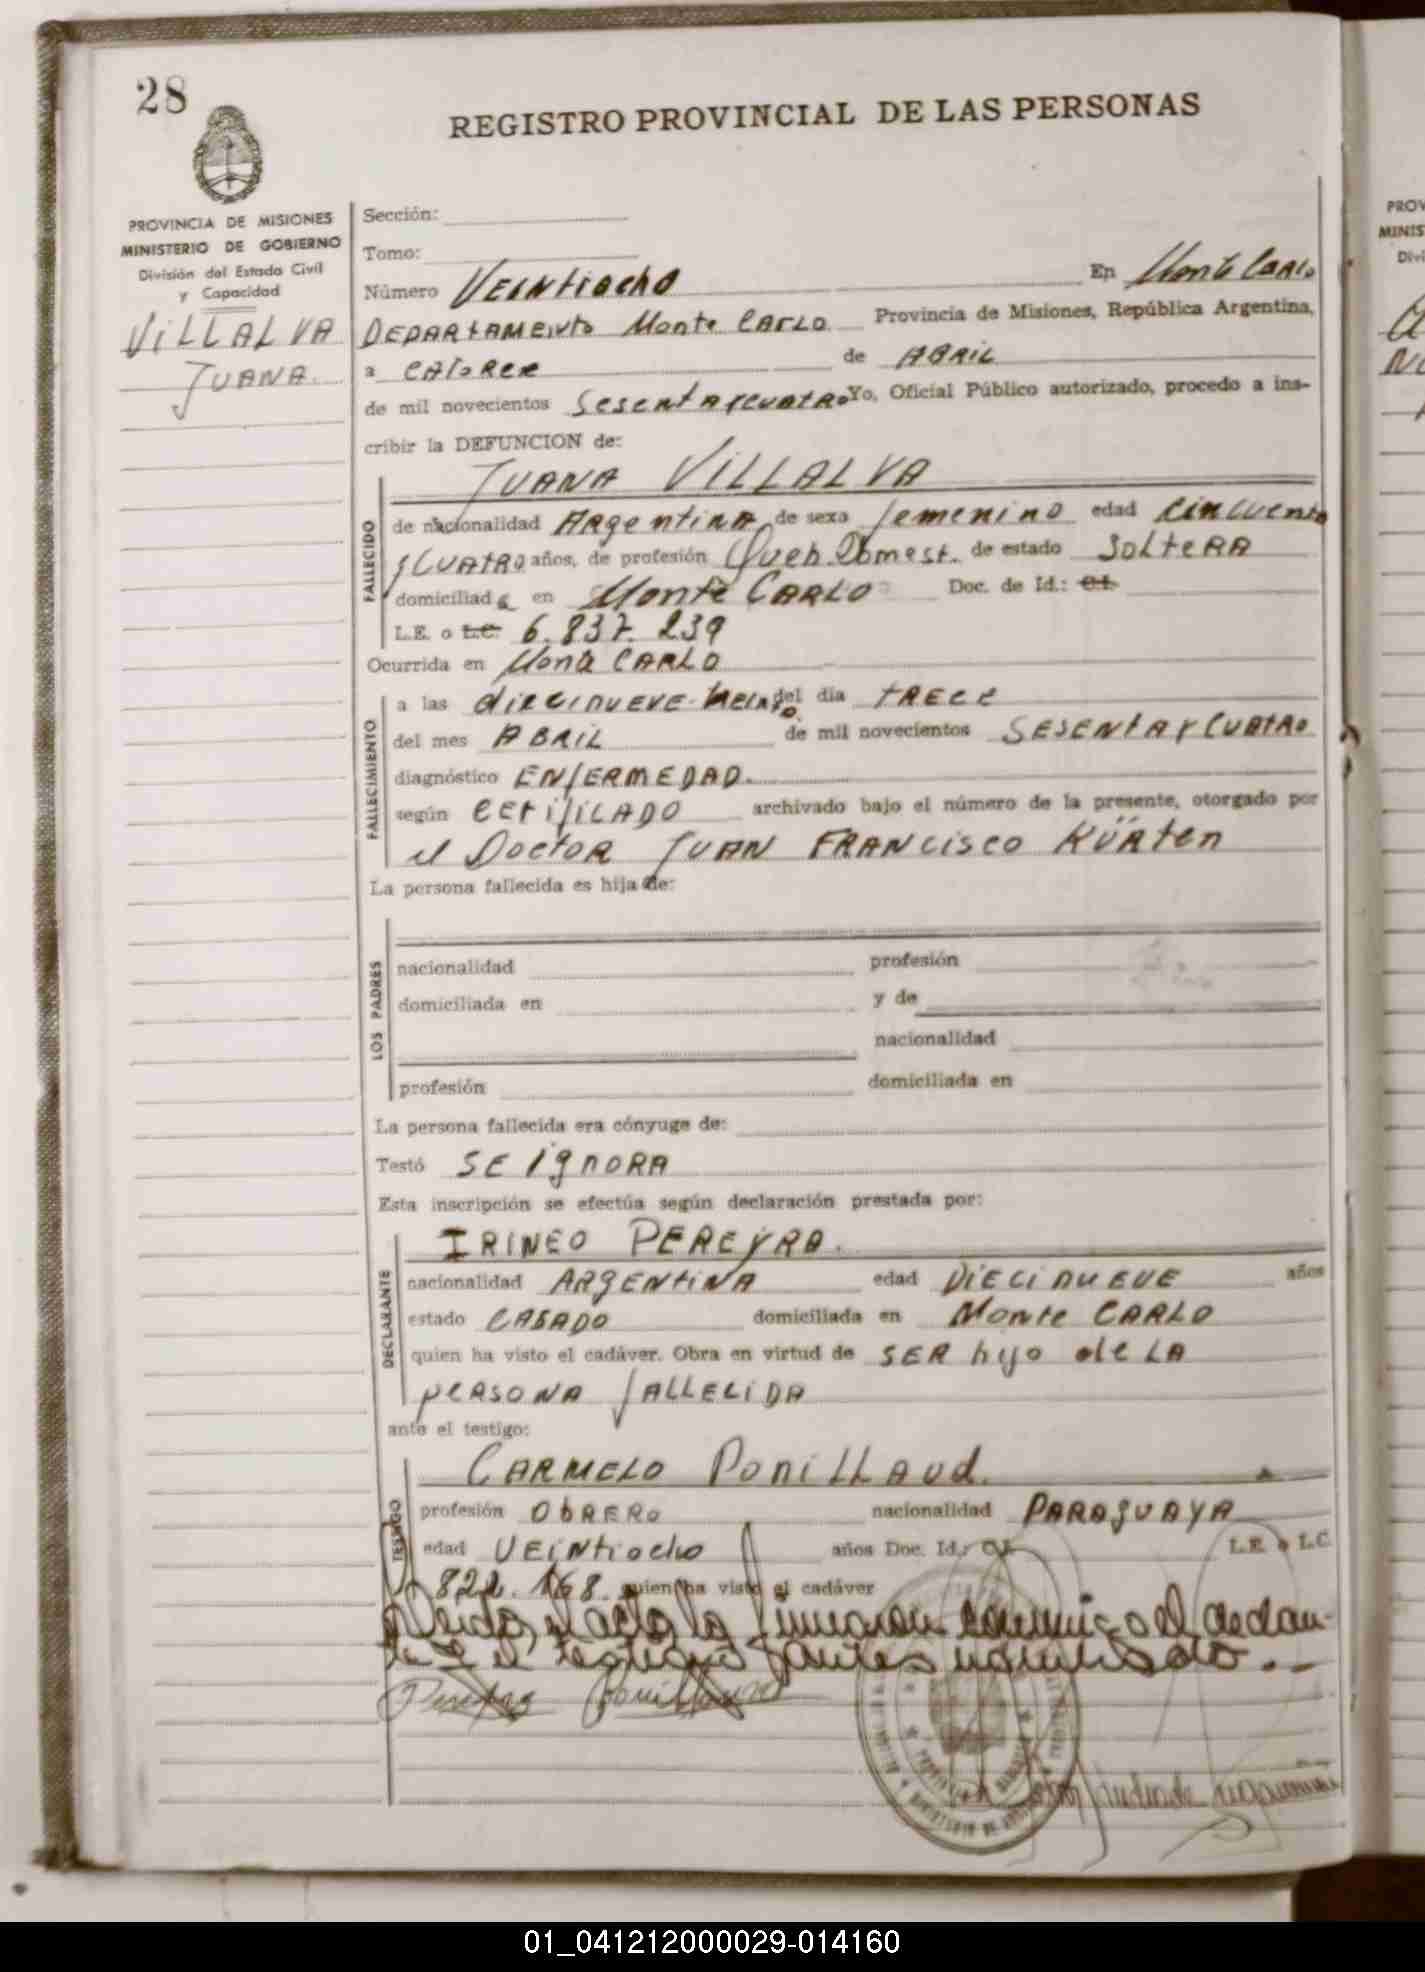 28
REGISTRO PROVINCIAL DE LAS PERSONAS
PROVINCIA DE MISIONES
MINISTERIO DE GOBIERNO
División del Estado Civil
y Capacidad
VILLALVA
JUANA.
Sección:
Tomo:
Número VEINtiocho En Monte Carlo
DEPARTAMENto Monte CARLO Provincia de Misiones, República Argentina,
a CAtorce de ABRIL
de mil novecientos SesentaycuatRo Yo, Oficial Público autorizado, procedo a ins-
cribir la DEFUNCION de:
JUANA VILLALVA
FALLECIDO
de nacionalidad ARgentina de sexo femenino edad cincuenta
yCUATRO años, de profesión Queh. Domest. de estado SOLtERA
domiciliada en Monte CARLO Doc. de Id.: C.I.
L.E. o L.C. 6.837.239
Ocurrida en Monte CARLO
FALLECIMIENTO
a las diecinueve treinta del día tRECE
del mes ABRIL de mil novecientos SESENtA y CUAtRo
diagnóstico ENfERMEDAD.
según CERtifICADO archivado bajo el número de la presente, otorgado por
el Doctor JUAN FRANcisco KÜRten
La persona fallecida es hija de:
LOS PADRES
nacionalidad profesión
domiciliada en y de
nacionalidad
profesión domiciliada en
La persona fallecida era cónyuge de:
Testó SE IgnORA
Esta inscripción se efectúa según declaración prestada por:
IRINEO PEREYRA.
DECLARANTE
nacionalidad ARgENtINA edad DIECInUEVE años
estado CASADO domiciliada en Monte CARLO
quien ha visto el cadáver. Obra en virtud de SER hijo de LA
pERSONA fALLECIDA
ante el testigo:
CARMELO PoniLLAud.
TESTIGO
profesión ObRERo nacionalidad PARAgUAYA
edad VEINtiocho años Doc. Id.: C.I. L.E. o L.C.
168. quien ha visto el cadáver
Leida el acta la firmaron conmigo el declaran-
te y el testigo
01_041212000029-014160